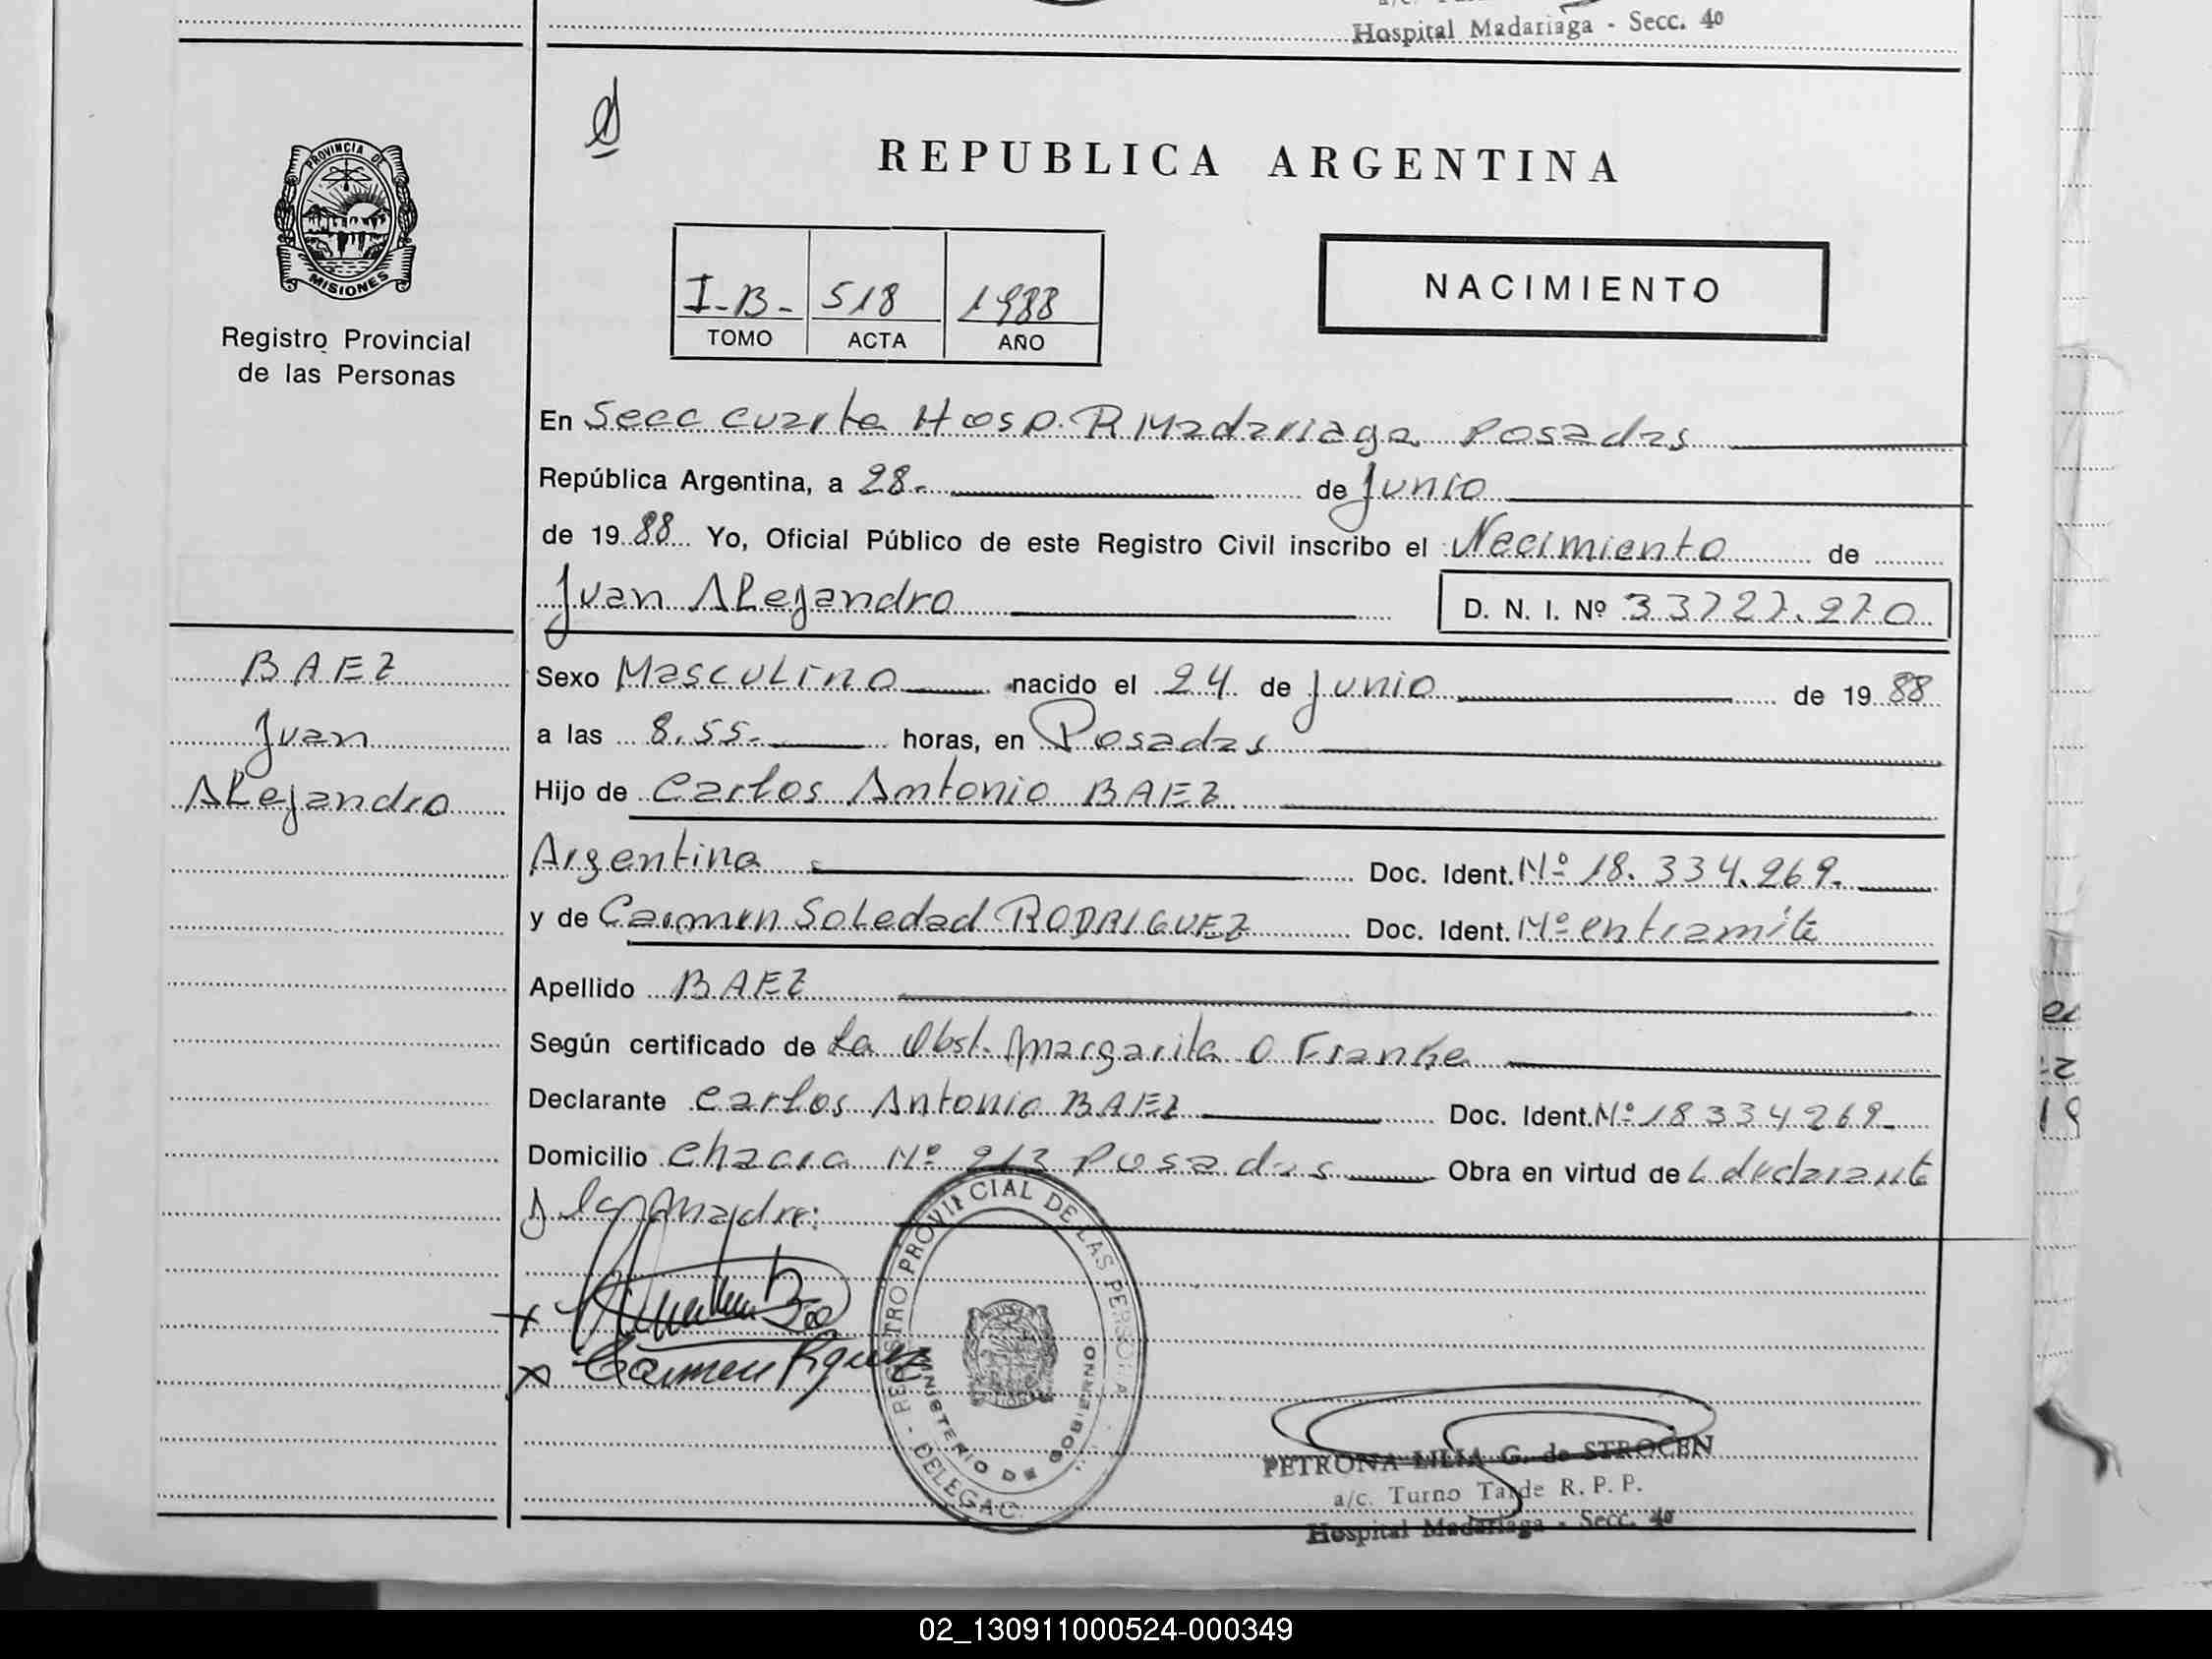 Hospital Madariaga - Secc. 4º
PROVINCIA DE
MISIONES
Registro Provincial
de las Personas
REPUBLICA ARGENTINA
I-B- 518 1988
TOMO ACTA AÑO
NACIMIENTO
En Secc cuarta Hosp. R Madariaga Posadas
República Argentina, a 28. de Junio
de 19 88 Yo, Oficial Público de este Registro Civil inscribo el Nacimiento de
Juan Alejandro D. N. I. Nº 33727.270
BAEZ
Juan
Alejandro
Sexo Masculino nacido el 24 de Junio de 19 88
a las 8.55. horas, en Posadas
Hijo de Carlos Antonio BAEZ
Argentina Doc. Ident. Nº 18.334.269.
y de Carmen Soledad RODRIGUEZ Doc. Ident. Nº en tramite
Apellido BAEZ
Según certificado de La Obst. Margarita O Franke
Declarante Carlos Antonio BAEZ Doc. Ident. Nº 18334269.
Domicilio Chacra Nº 213 Posadas Obra en virtud de L declarante
A la Madre:
REGISTRO PROVINCIAL DE LAS PERSONA - DELEGAC.
MINISTERIO DE GOBIERNO
Carmen
PETRONA LILIA G. de STROCEN
a/c. Turno Tarde R. P. P.
Hospital Madariaga - Secc. 4º
02_130911000524-000349